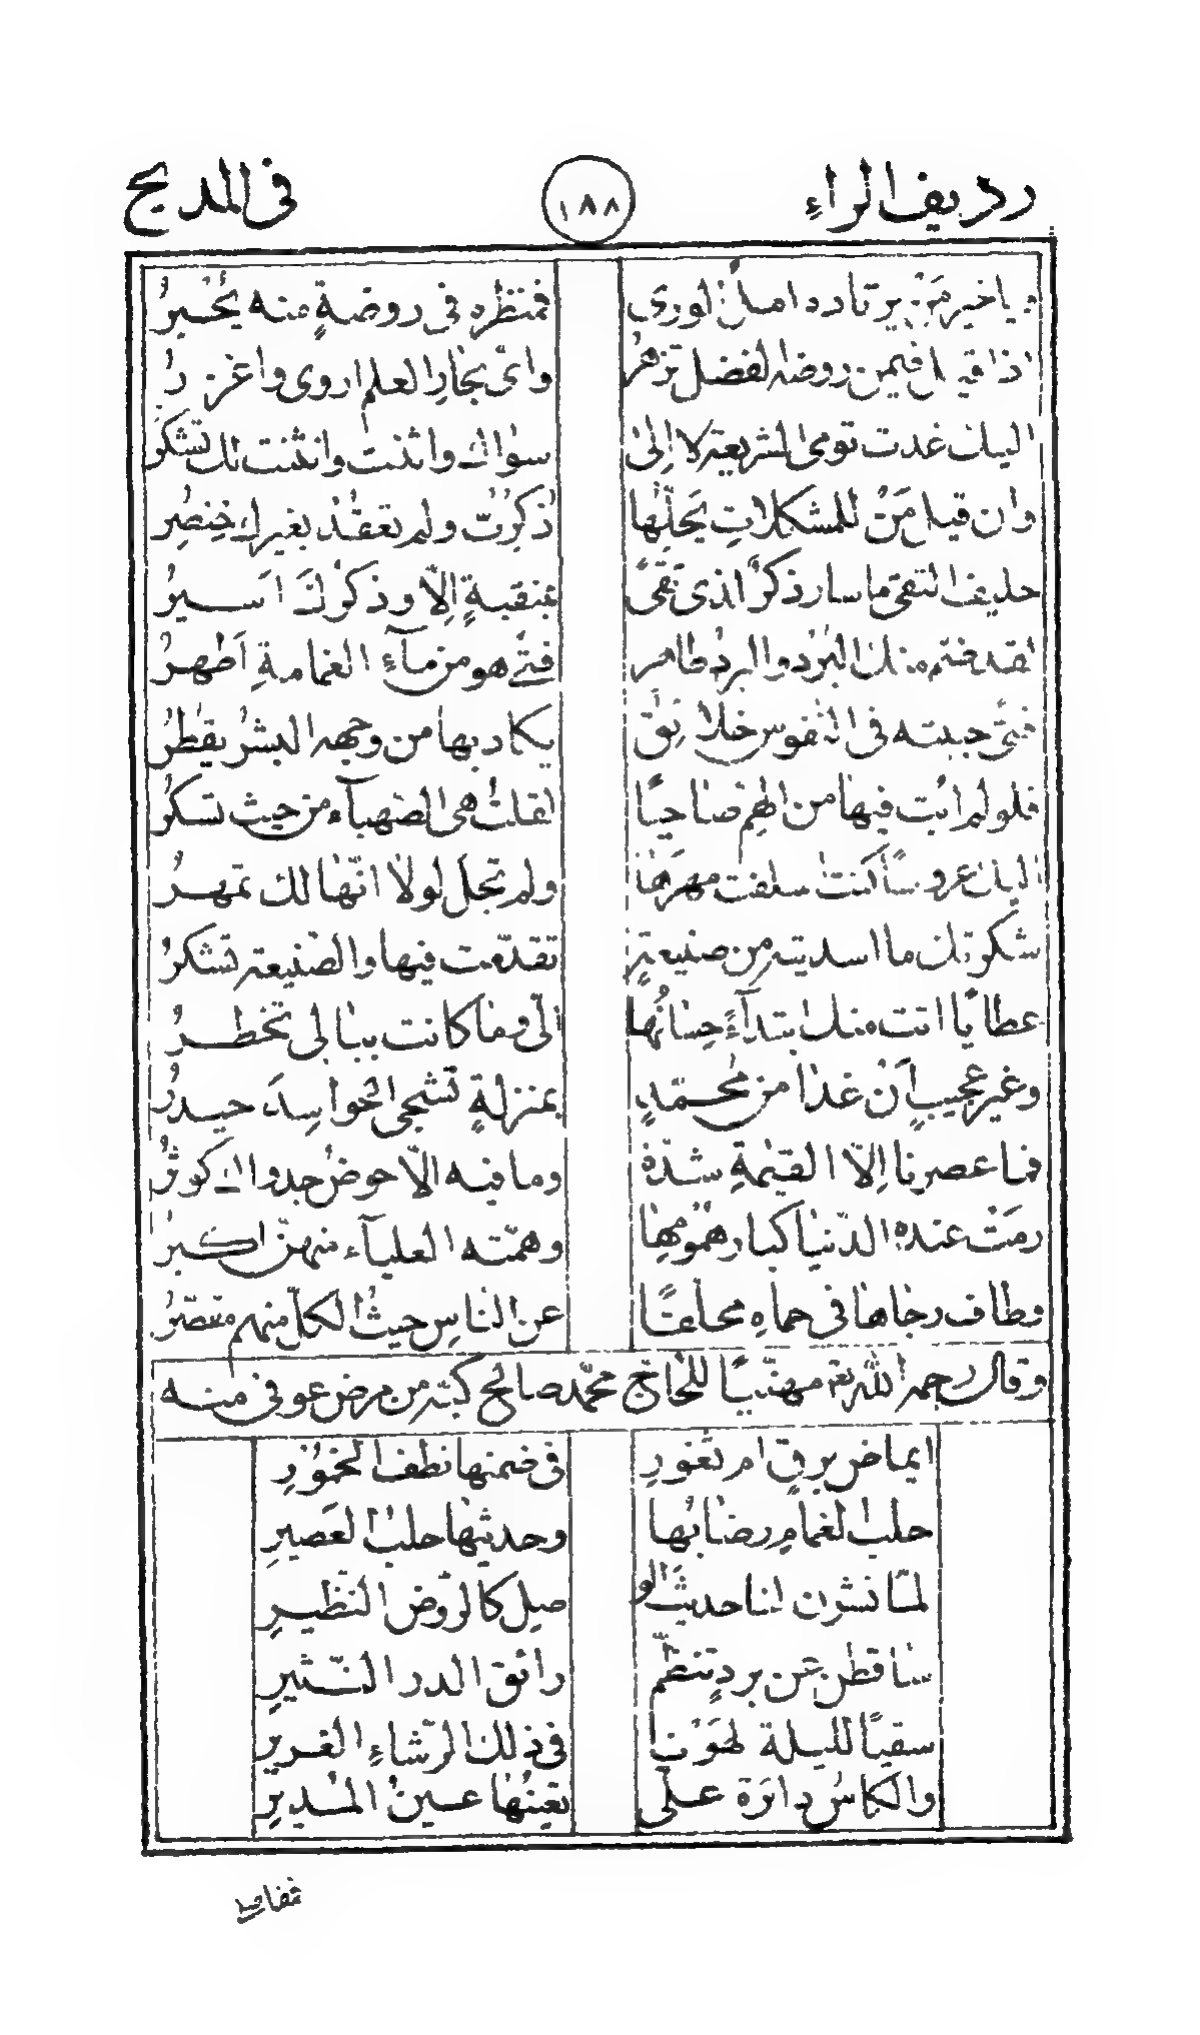 رديف الراء ١٨٨ في المديح
ويا خير من يرتاده امل الورى فمنظره في روضةٍ منه يحبرُ
اذا قيل فيمن روضه لفضل تزهرُ واىّ بحارِ العلم اروى واغزرُ
اليك غدت تومى الشريعة لا الى سواك واثنت وانثنت لك تشكرُ
وان قيل مَنْ للمشكلاتِ يحلّها ذكرتَ ولم تعقد بغيرك خنصِرُ
حليف التقى ما سار ذكرُ الذي تقىً بمنقبةٍ اِلّا وذكرك اَسيرُ
لقد ختم منك البُرْد والبرد طاهر فتىً هو من مآءِ الغمامةِ اَطهرُ
فتىً حببته في النفوس خلائق يكاد بها من وجهه البشرُ يقطرُ
فلو لم ابت فيها من الهمّ صاحيًا لقلتُ هي الصّهبآء من حيث تسكرُ
اليك عروسًا كنتَ سلفت مهرَها ولم تجلَ لولا انّها لك تمهرُ
شكرتك ما اسديته من صنيعةٍ تقدّمت فيها والصّنيعة تشكرُ
عطايًا اتت منك ابتدآءً حِسانُها الىّ وما كانت ببالى تخطرُ
وغير عجيبٍ اَنْ غدا من محمّدٍ بمنزلةٍ تشجى الحواسِدَ حيدرُ
فما عصرنا اِلّا القيٰمةِ شدّة وما فيه الّا حوضُ جدواك كوثرُ
رمَتْ عنده الدّنيا كبار همُومها وهمّته العليآء منهنّ اكبرُ
وطاف رجاها في حماهِ محلّقًا عن الناسِ حيثُ الكلّ منهم مقصّرُ
وقال رحمه الله تع مهنّيًا للحاجّ محمّد صالح كبّه من مرض عوفي منه
ايماض برقٍ ام ثغورِ في ضمنها نطف الخمُورِ
حلب الغمامِ رضابُها وحديثها حلبُ العَصيرِ
لمّا نشرن لنا حديثَ الو صل كالرّوض النّظيرِ
ساقطن عن بردٍ تنظّم رائق الدر النّثيرِ
سقيًا لليلة لهَوْنا في ذلك الرّشاءِ الغريرِ
والكاسُ دائرة علىّ بعينُها عينُ المُديرِ